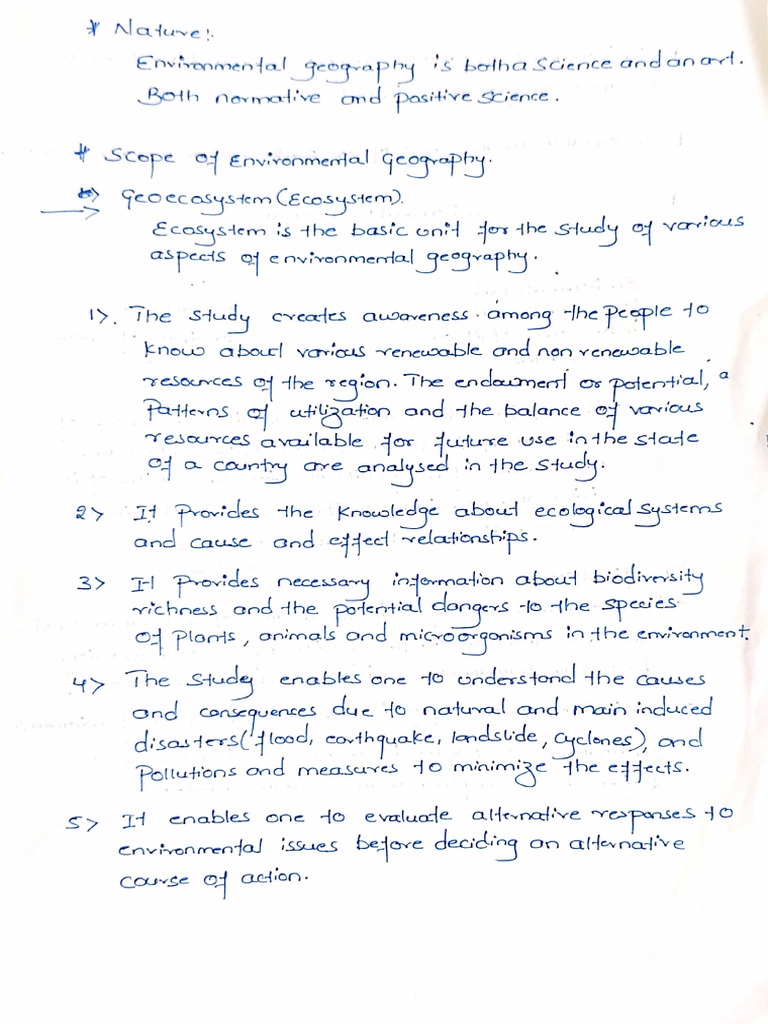 * Nature:.
Environmental geography is both a science and an art.
Both normative and positive science.
* Scope of Environmental Geography.
Geoecosystem (Ecosystem).
Ecosystem is the basic unit for the study of various
aspects of environmental geography.
1>. The study creates awareness among the people to
know about various renewable and non renewable
resources of the region. The endowment or potential, a
Patterns of utilization and the balance of various
resources available for future use in the state
of a country are analysed in the study.
2> It Provides the knowledge about ecological systems
and cause and effect relationships.
3> It Provides necessary information about biodiversity
richness and the potential dangers to the species
of Plants, animals and microorganisms in the environment.
4> The study enables one to understand the causes
and consequences due to natural and main induced
disasters (flood, earthquake, landslide, cyclones), and
Pollutions and measures to minimize the effects.
5> It enables one to evaluate alternative responses to
environmental issues before deciding an alternative
course of action.